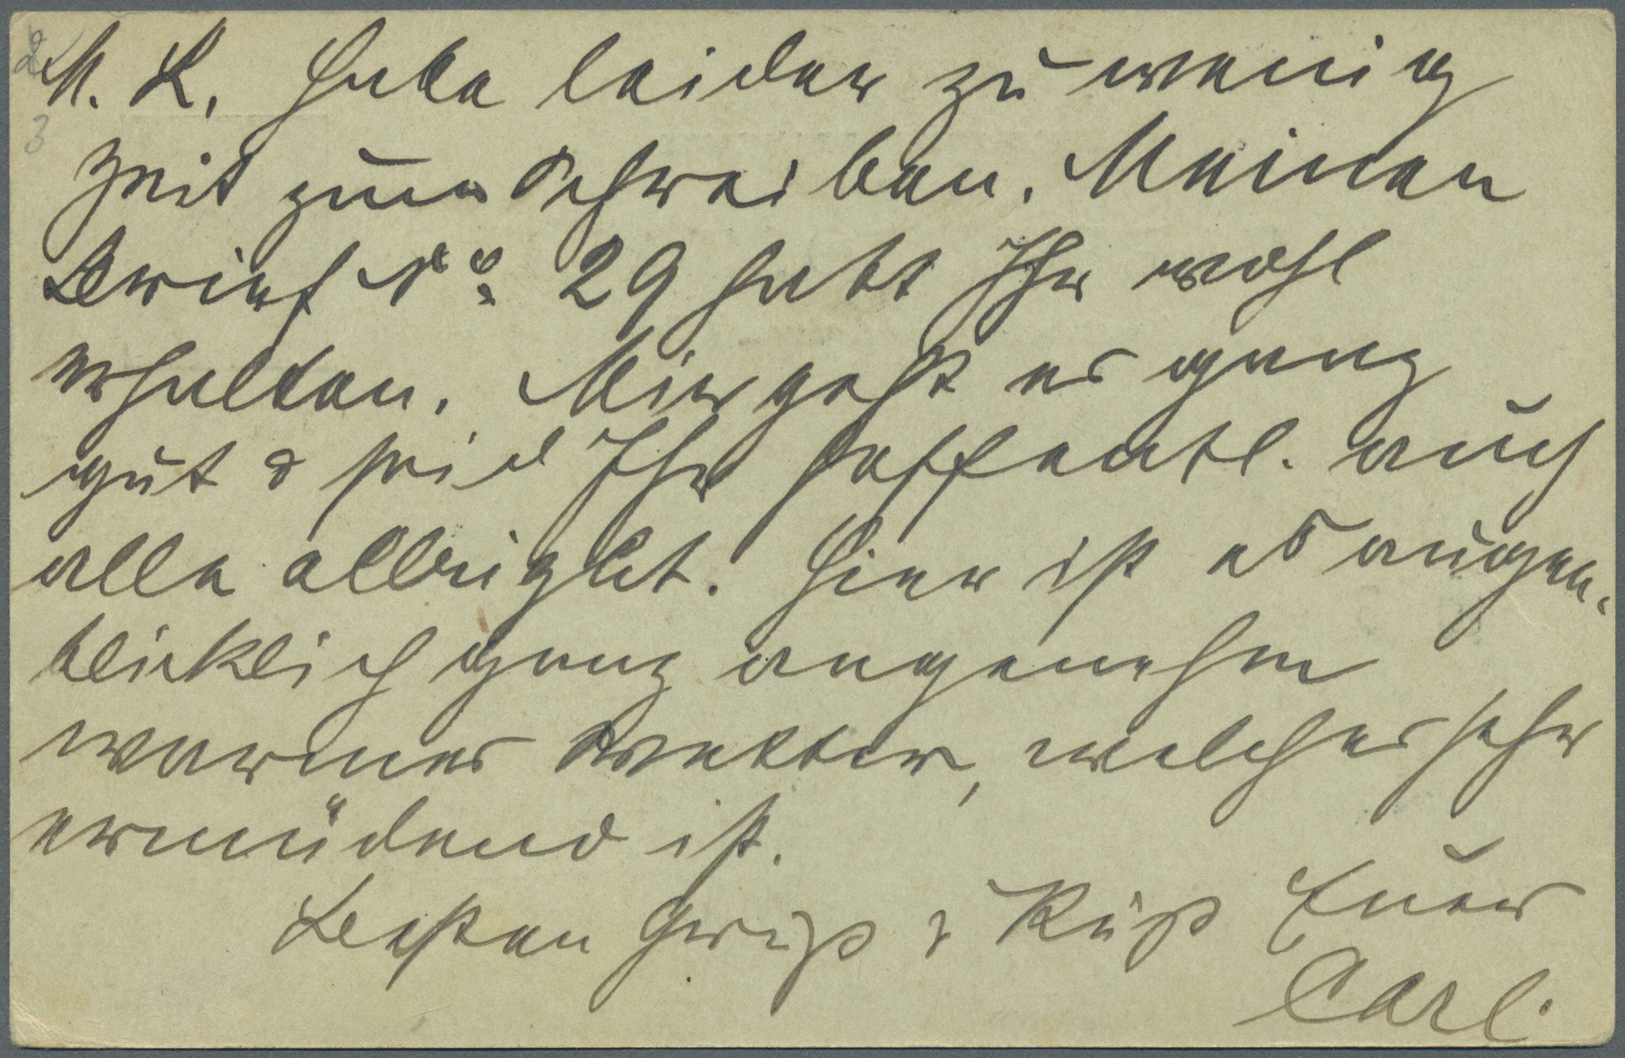 M. L. Habe leider zu wenig
Zeit zum Schreiben. Meinen
Brief No. 29 habt Ihr wohl
erhalten. Mir geht es ganz
gut & seid Ihr hoffentl. auch
alle allright. Hier ist es augen-
blicklich ganz angenehm
warmes Wetter, welches sehr
ermüdend ist.
Besten Gruß & Kuß Euer
Carl.